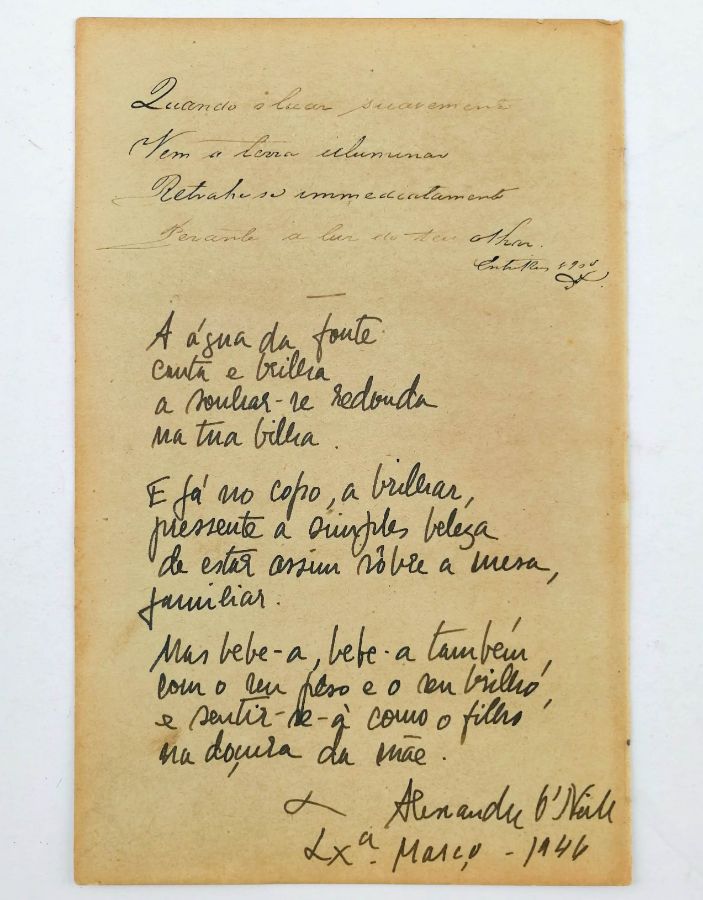 Quando o luar suavemente
Vem a terra illuminar
Retrahe-se immediatamente
Perante a luz do teu olhar.
A água da fonte
canta e brilha
a sonhar-se redonda
na tua bilha.
E já no copo, a brilhar,
pressente a simples beleza
de estar assim sôbre a mesa,
familiar.
Mas bebe-a, bebe-a também,
com o seu peso e o seu brilho,
e sentir-se-à como o filho
na doçura da mãe.
Alexandre O'Neill
Lxª. Março - 1946